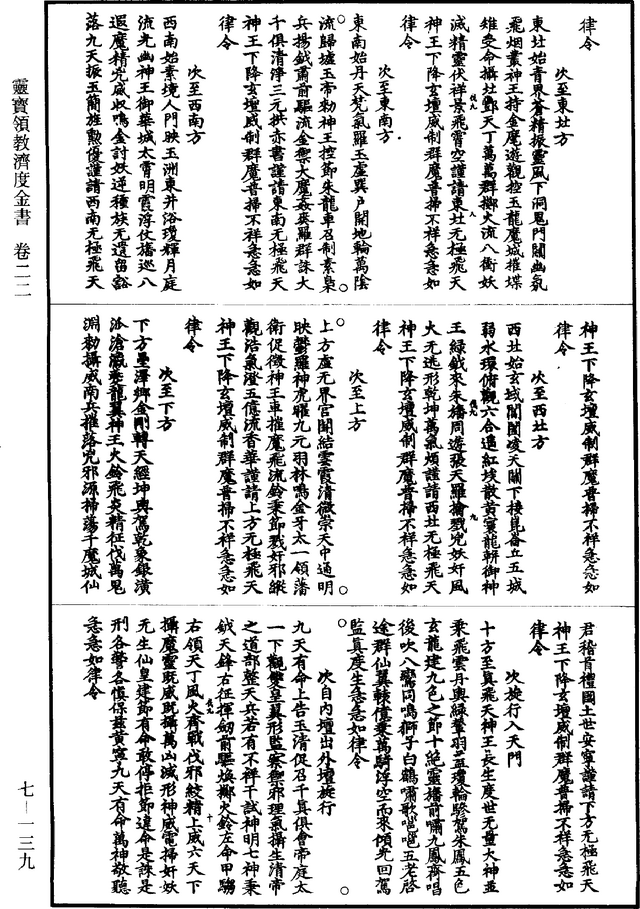 律令
次至東北方
東北始青界蒼精振靈風下洞鬼門關幽氛
飛烟叢神王持金魔遊觀控玉龍魔城摧堞
雉受命攝北酆天丁萬萬群擲火流八衝妖
滅精靈伏祥景飛霄空謹請東北无極飛天
神王下降玄壇威制群魔普掃不祥急急如
律令
次至東南方
東南始丹天梵氣羅玉虛巽户開地輪萬陰
流歸墟玉帝勑神王控節朱龍車召制素梟
兵揚鉞肅前驅流金禦大魔姦衆羅群誅大
千俱清淨三元拱赤書謹請東南无極飛天
神王下降玄壇威制群魔普掃不祥急急如
律令
次至西南方
西南始素境人門映玉洲東井浴瓊輝月庭
流光幽神王御華城太霄明霞浮仗旛巡八
遐魔精兇威収鳴金討妖逆種族无遺留豁
落九天振玉簡旌勲優謹請西南无極飛天
神王下降玄壇威制群魔普掃不祥急急如
律令
次至西北方
西北始玄城閶闔凌天關下棲崑崙丘五城
弱水環俯觀六合邊紅埃散黄寰龍軿御神
王綠鉞來朱旛周遊張天羅擒戮兇妖奸風
火无逃形乾坤萬氣煩謹請西北无極飛天
神王下降玄壇威制群魔普掃不祥急急如
律令
次至上方
上方虛无界宫闕結雲霞清微崇天中通明
映鬱羅神虎躍九元羽林鳴金牙太一領藩
衛促徵神王車摧魔飛流鈴秉節戮奸邪縱
觀浩氣澄五億流香華謹請上方无極飛天
神王下降玄壇威制群魔普掃不祥急急如
律令
次至下方
下方墨澤鄉金剛轉天經坤輿駕乾乘銀潢
派滄瀛乘龍翼神王火鈴飛炎精征伐萬鬼
淵勑攝威南兵摧落兇邪源掃蕩千魔城仙
君稽首禮國土世安寧謹請下方无極飛天
神王下降玄壇威制群魔普掃不祥急急如
律令
次旋行入天門
十方至真飛天神王長生度世无量大神並
乘飛雲丹輿綠輦羽蓋瓊輪驂駕朱鳳五色
玄龍建九色之節十絶靈旛前嘯九鳳齊唱
後吹八鸞同鳴獅子白鶴嘯歌邕邕五老啓
途群仙翼轅億乘萬騎浮空而來傾光回駕
監真度生急急如律令
次自内壇出外壇旋行
九天有命上告玉清促召千真俱會帝庭太
一下觀雙皇翼形監察禦邪理氣攝生清帝
之道部整天兵若有不祥干試神明七神秉
鉞天鋒右征揮劒前驅煥擲火鈴左命甲騶
右領天丁風火齊戰伐邪絞精上威六天下
攝魔靈既威既攝萬凶滅形神威電掃奸妖
无生仙皇建節有命敢停拒節違命是誅是
刑各勞各慎保兹黄寧九天有命萬神敬聽
急急如律令
靈寶領教濟度金書　卷二二
七—一三九